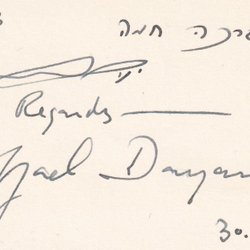 ברכה חמה
Regards
Yael Dayan
30.